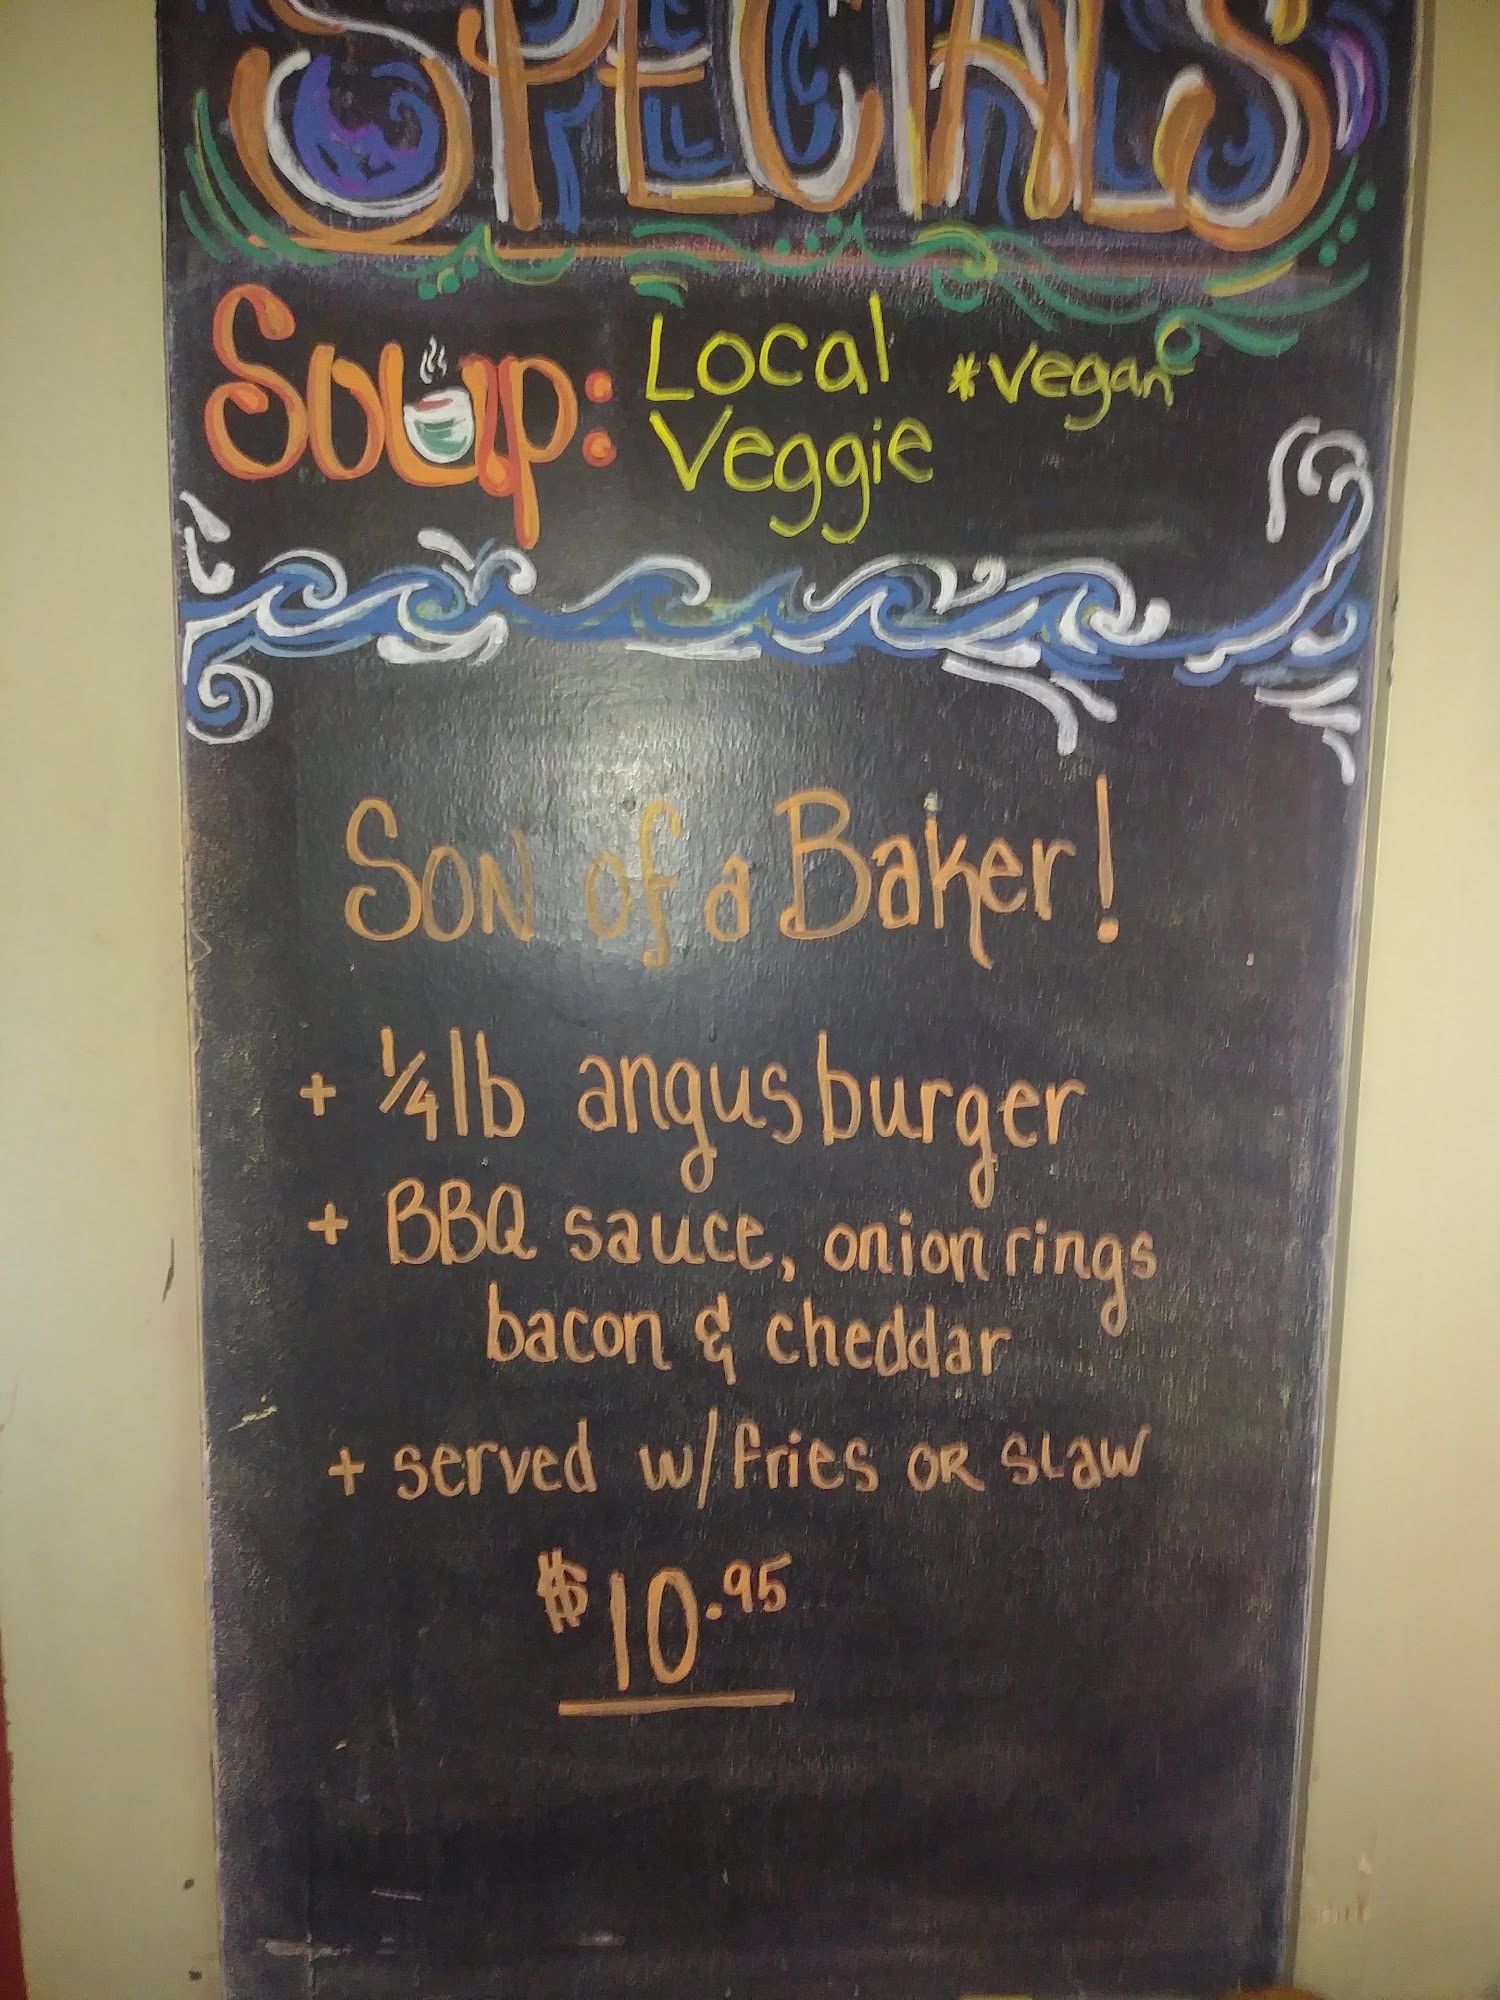 SPECIALS
Soup: Local *vegan
Veggie
Son of a Baker!
+ 1/4 lb angus burger
+ BBQ sauce, onion rings
bacon & cheddar
+ served w/ fries OR SLAW
$10.95